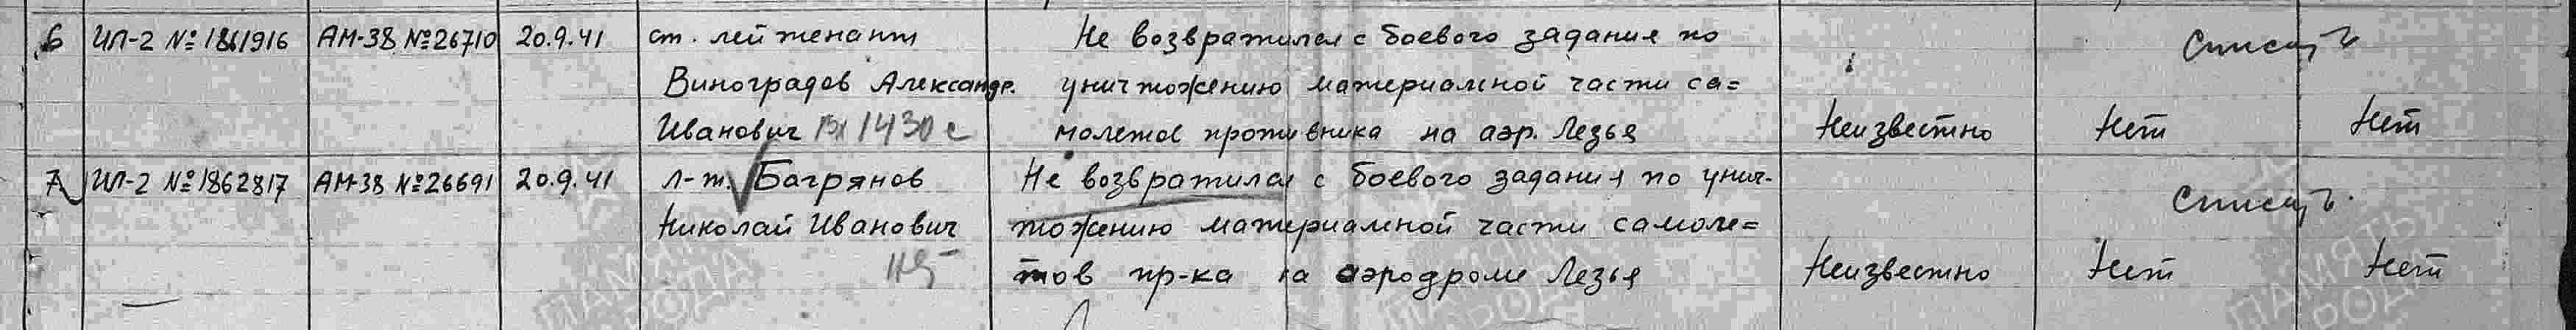 6 ИЛ-2 №1861916 АМ-38 №26710 20.9.41 ст. лейтенант Не возвратился с боевого задания по Списать
Виноградов Александр. уничтожению материальной части са=
Иванович 1430с молетов противника на аэр. Лезье Неизвестно Нет Нет
7 ИЛ-2 №1862817 АМ-38 №26691 20.9.41 л-т. Багрянов Не возвратился с боевого задания по унич- Списать.
Николай Иванович тожению материальной части самоле=
тов пр-ка на аэродроме Лезья Неизвестно Нет Нет
ПАМЯТЬ НАРОДА